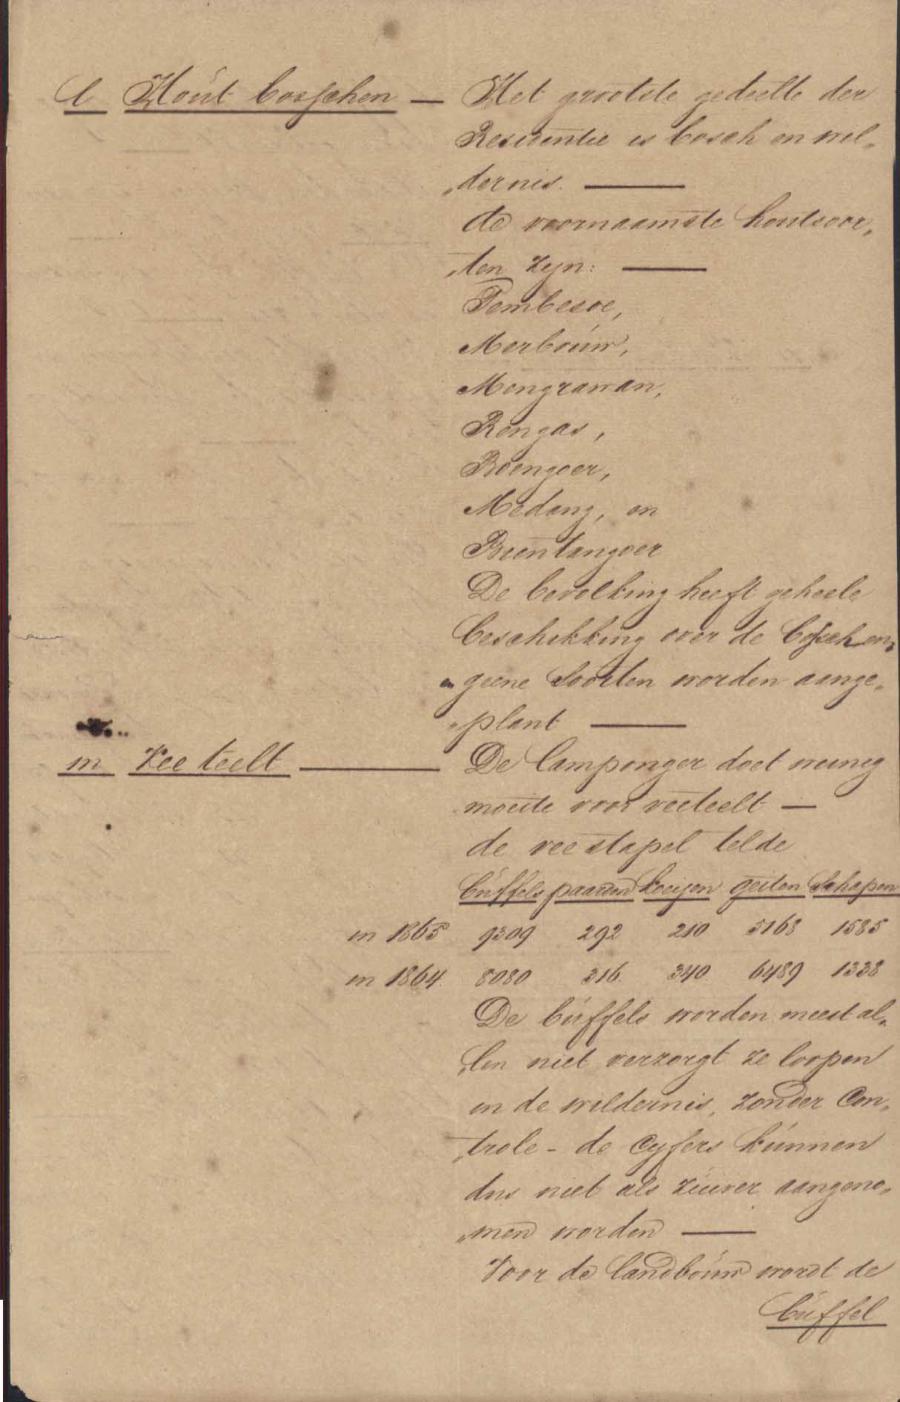 l Hout bosschen — Het grootste gedeelte der
Residentie is bosch en wil„
„dernis. —
de voornaamste houtsoor„
„ten zyn: —
Tembesoe,
Merbouw,
Mengrawan,
Rengas,
Boengoer,
Medang, en
Bientangoer
De bevolking heeft geheele
beschikking over de bosschen„
geene soorten worden aange„
„plant —
m Vee teelt — De Camponger doet weinig
moeite voor veeteelt —
de vee stapel telde
buffels paarden koeijen geiten schapen
in 1865 9309 292 210 5168 1585
in 1864 8080 316 340 6489 1338
De buffels worden meest al„
„len niet verzorgt ze loopen
in de wildernis, zonder Con„
„trole - de Cyfers kunnen
dus niet als zuiver aangeno„
„men worden —
Voor de landbouw wordt de
buffel